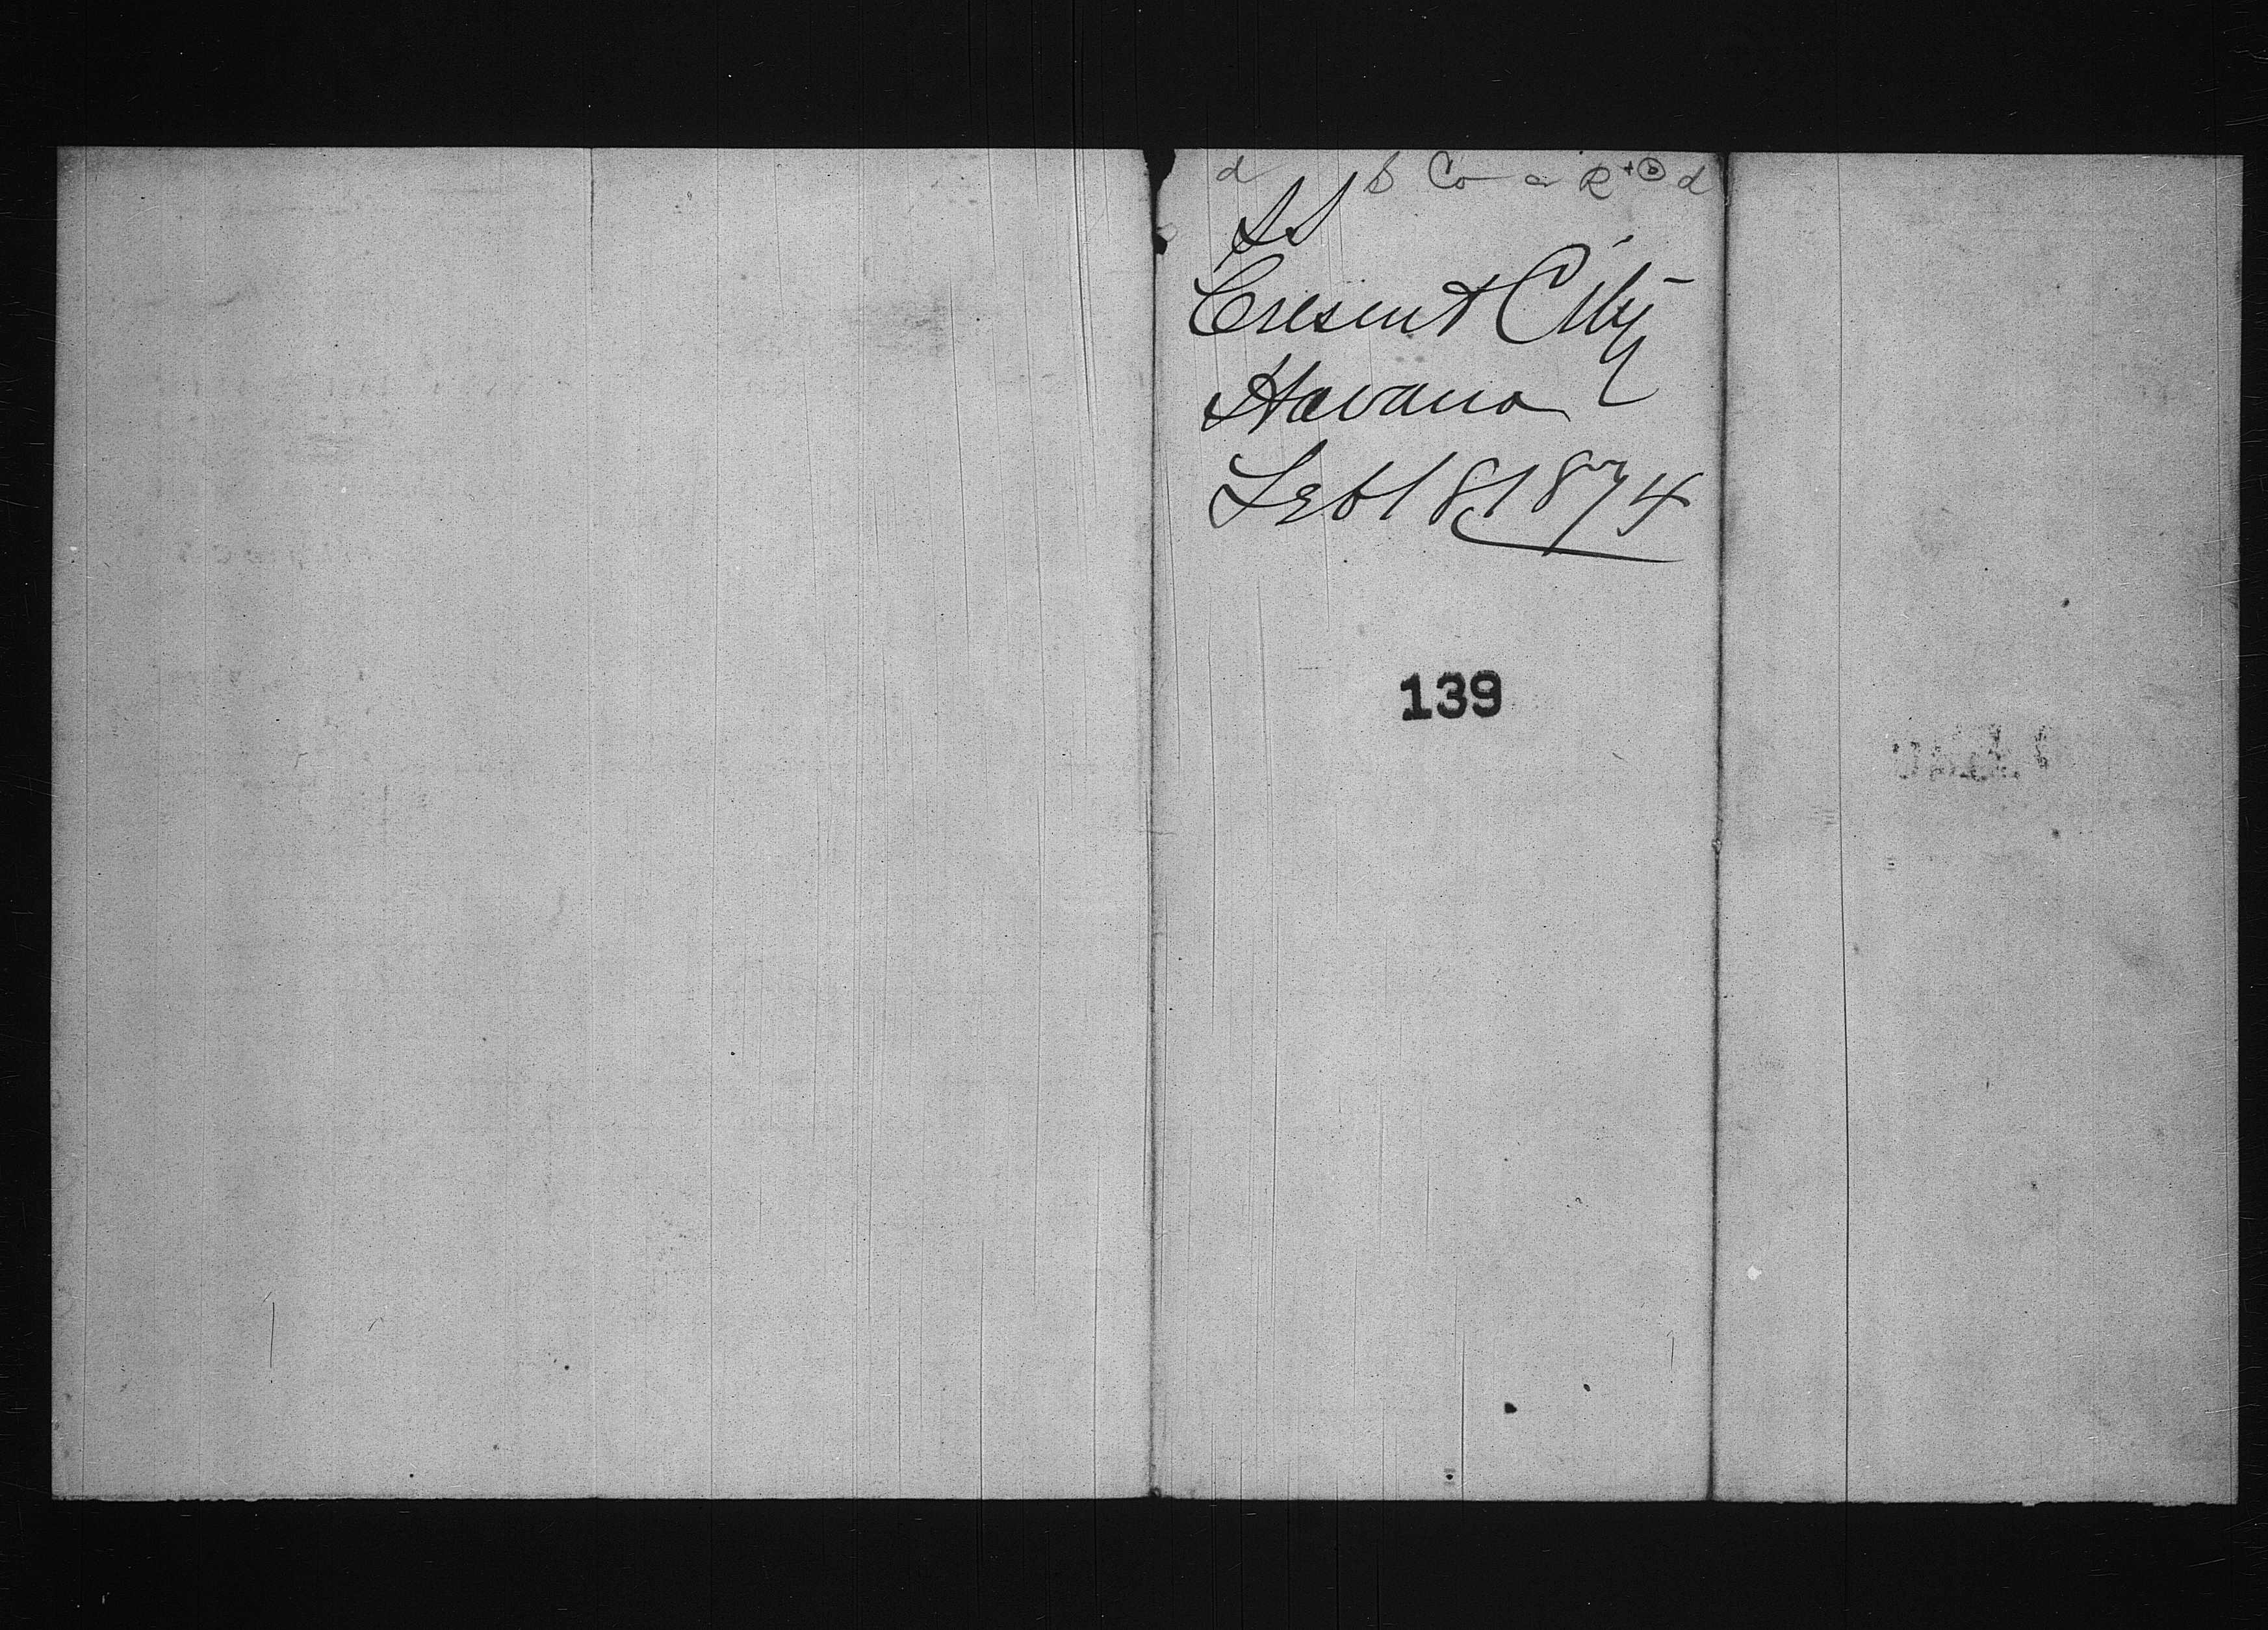 d S Co a R + B d
SS
Cresent City
Havana
Feb 18 1874
139